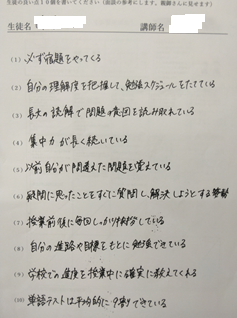 生徒の良い点10個を書いてください（面談の参考にします。親御さんに見せます）
生徒名　講師名
(1) 必ず宿題をやってくる
(2) 自分の理解度を把握して、勉強スケジュールをたてている
(3) 長文の読解で問題の意図を読み取れている
(4) 集中力が長く続いている
(5) 以前自分が間違えた問題を覚えている
(6) 疑問に思ったことをすぐに質問し、解決しようとする
(7) 授業前後に毎回しっかり挨拶している
(8) 自分の進路や目標をもとに勉強できている
(9) 学校での進度を授業中に確実に教えてくれる
(10) 単語テストは平均的に9割できている